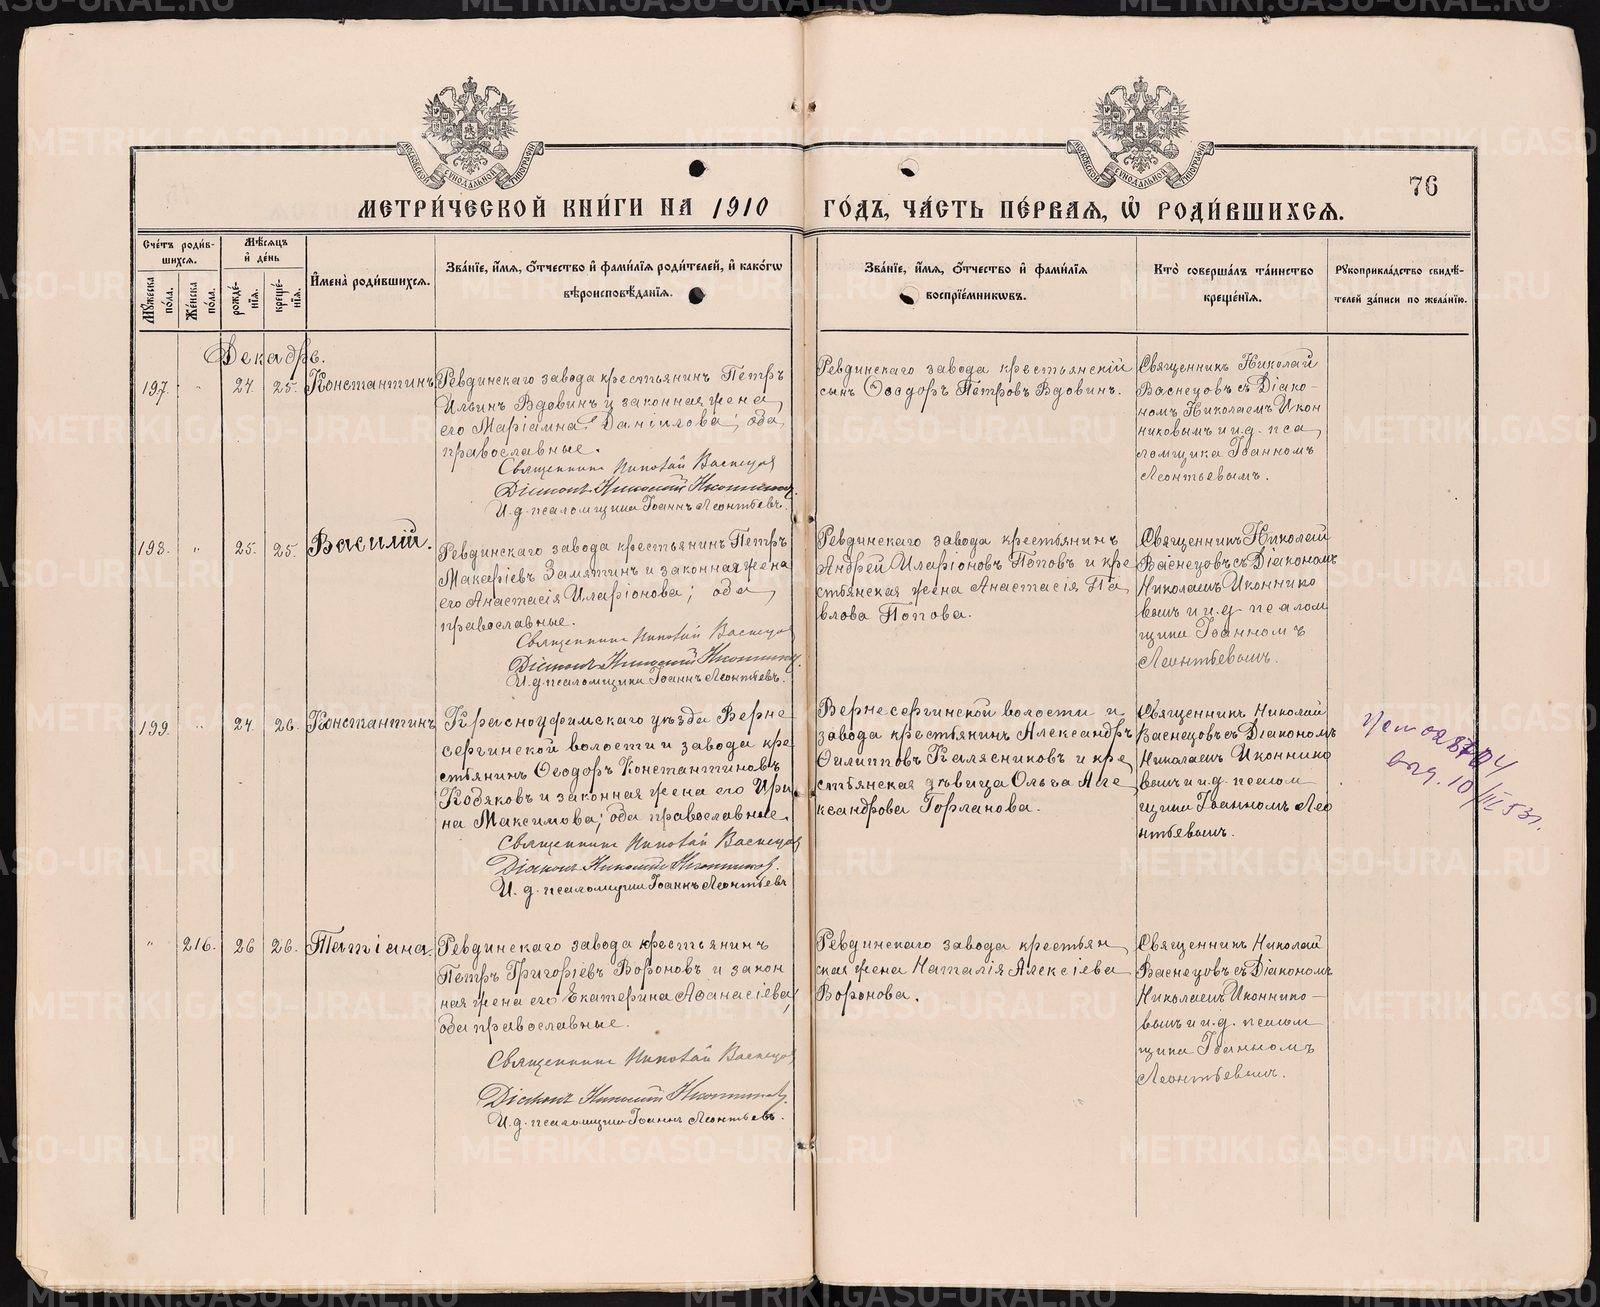 МЕТРИ́ЧЕСКОЙ КНИ́ГИ НА 1910 ГО́ДЪ, ЧА́СТЬ ПЕ́РВАЯ, Ѡ РОДИ́ВШИХСЯ.
76
Сче́тъ роди́в-
шихся.
Му́жеска по́ла.
Же́нска по́ла.
Мѣ́сяцъ и де́нь
рожде́-
нїя.
креще́-
нїя.
И҆мена̀ роди́вшихся.
Зва́нїе, и҆́мя, ѻ҆́тчество и҆ фами́лїя роди́телей, и҆ како́гѡ
вѣроисповѣ́данїя.
Зва́нїе, и҆́мя, ѻ҆́тчество и҆ фами́лїя
воспрїе́мниковъ.
Кто̀ соверша́лъ та́инство
креще́нїя.
Рꙋкоприкла́дство свидѣ́-
телей за́писи по жела́нїю.
Декабрь.
197. " 24. 25. Константинъ
Ревдинскаго завода крестьянинъ Петръ
Ильинъ Вдовинъ и законная жена
его Маріамна Даніилова; оба
православные.
Священникъ Николай Васнецов
Діаконъ Николай Иконников
И. д. псаломщика Іоаннъ Леонтьевъ.
Ревдинскаго завода крестьянскій
сынъ Ѳеодоръ Петровъ Вдовинъ.
Священникъ Николай
Васнецовъ съ Діако-
номъ Николаемъ Икон
никовымъ и и.д. пса
ломщика Іоанномъ
Леонтьевымъ.
198. " 25. 25. Василій.
Ревдинскаго завода крестьянинъ Петръ
Макаріевъ Замятинъ и законная жена
его Анастасія Иларіонова; оба
православные.
Священникъ Николай Васнецов
Діаконъ Николай Иконников
И. д. псаломщика Іоаннъ Леонтьевъ.
Ревдинскаго завода крестьянинъ
Андрей Иларіоновъ Поповъ и кре
стьянская жена Анастасія Па
влова Попова.
Священникъ Николай
Васнецовъ съ Діакономъ
Николаемъ Иконнико
вымъ и и.д. псалом
щика Іоанномъ
Леонтьевымъ.
199. " 24. 26. Константинъ
Красноуфимскаго уѣзда Верне
сергинской волости и завода кре
стьянинъ Ѳеодоръ Константиновъ
Кодяковъ и законная жена его Ири
на Максимова; оба православные.
Священникъ Николай Васнецов
Діаконъ Николай Иконников.
И. д. псаломщика Іоаннъ Леонтьевъ
Вернесергинской волости и
завода крестьянинъ Александръ
Филипповъ Калясниковъ и кре
стьянская дѣвица Ольга Але
ксандрова Горланова.
Священникъ Николай
Васнецовъ съ Діакономъ
Николаемъ Иконнико
вымъ и и.д. псалом
щика Іоанномъ Лео
нтьевымъ.
10/III 53г.
" 216. 26 26. Татіана.
Ревдинскаго завода крестьянинъ
Петръ Григоріевъ Вороновъ и закон
ная жена его Екатерина Аѳанасіева,
оба православные.
Священникъ Николай Васнецов
Діаконъ Николай Иконников.
И. д. псаломщика Іоаннъ Леонтьевъ.
Ревдинскаго завода крестьян
ская жена Наталія Алексіева
Воронова.
Священникъ Николай
Васнецовъ съ Діакономъ
Николаемъ Иконнико-
вымъ и и.д. псалом
щика Іоанномъ
Леонтьевымъ.
METRIKI.GASO-URAL.RU